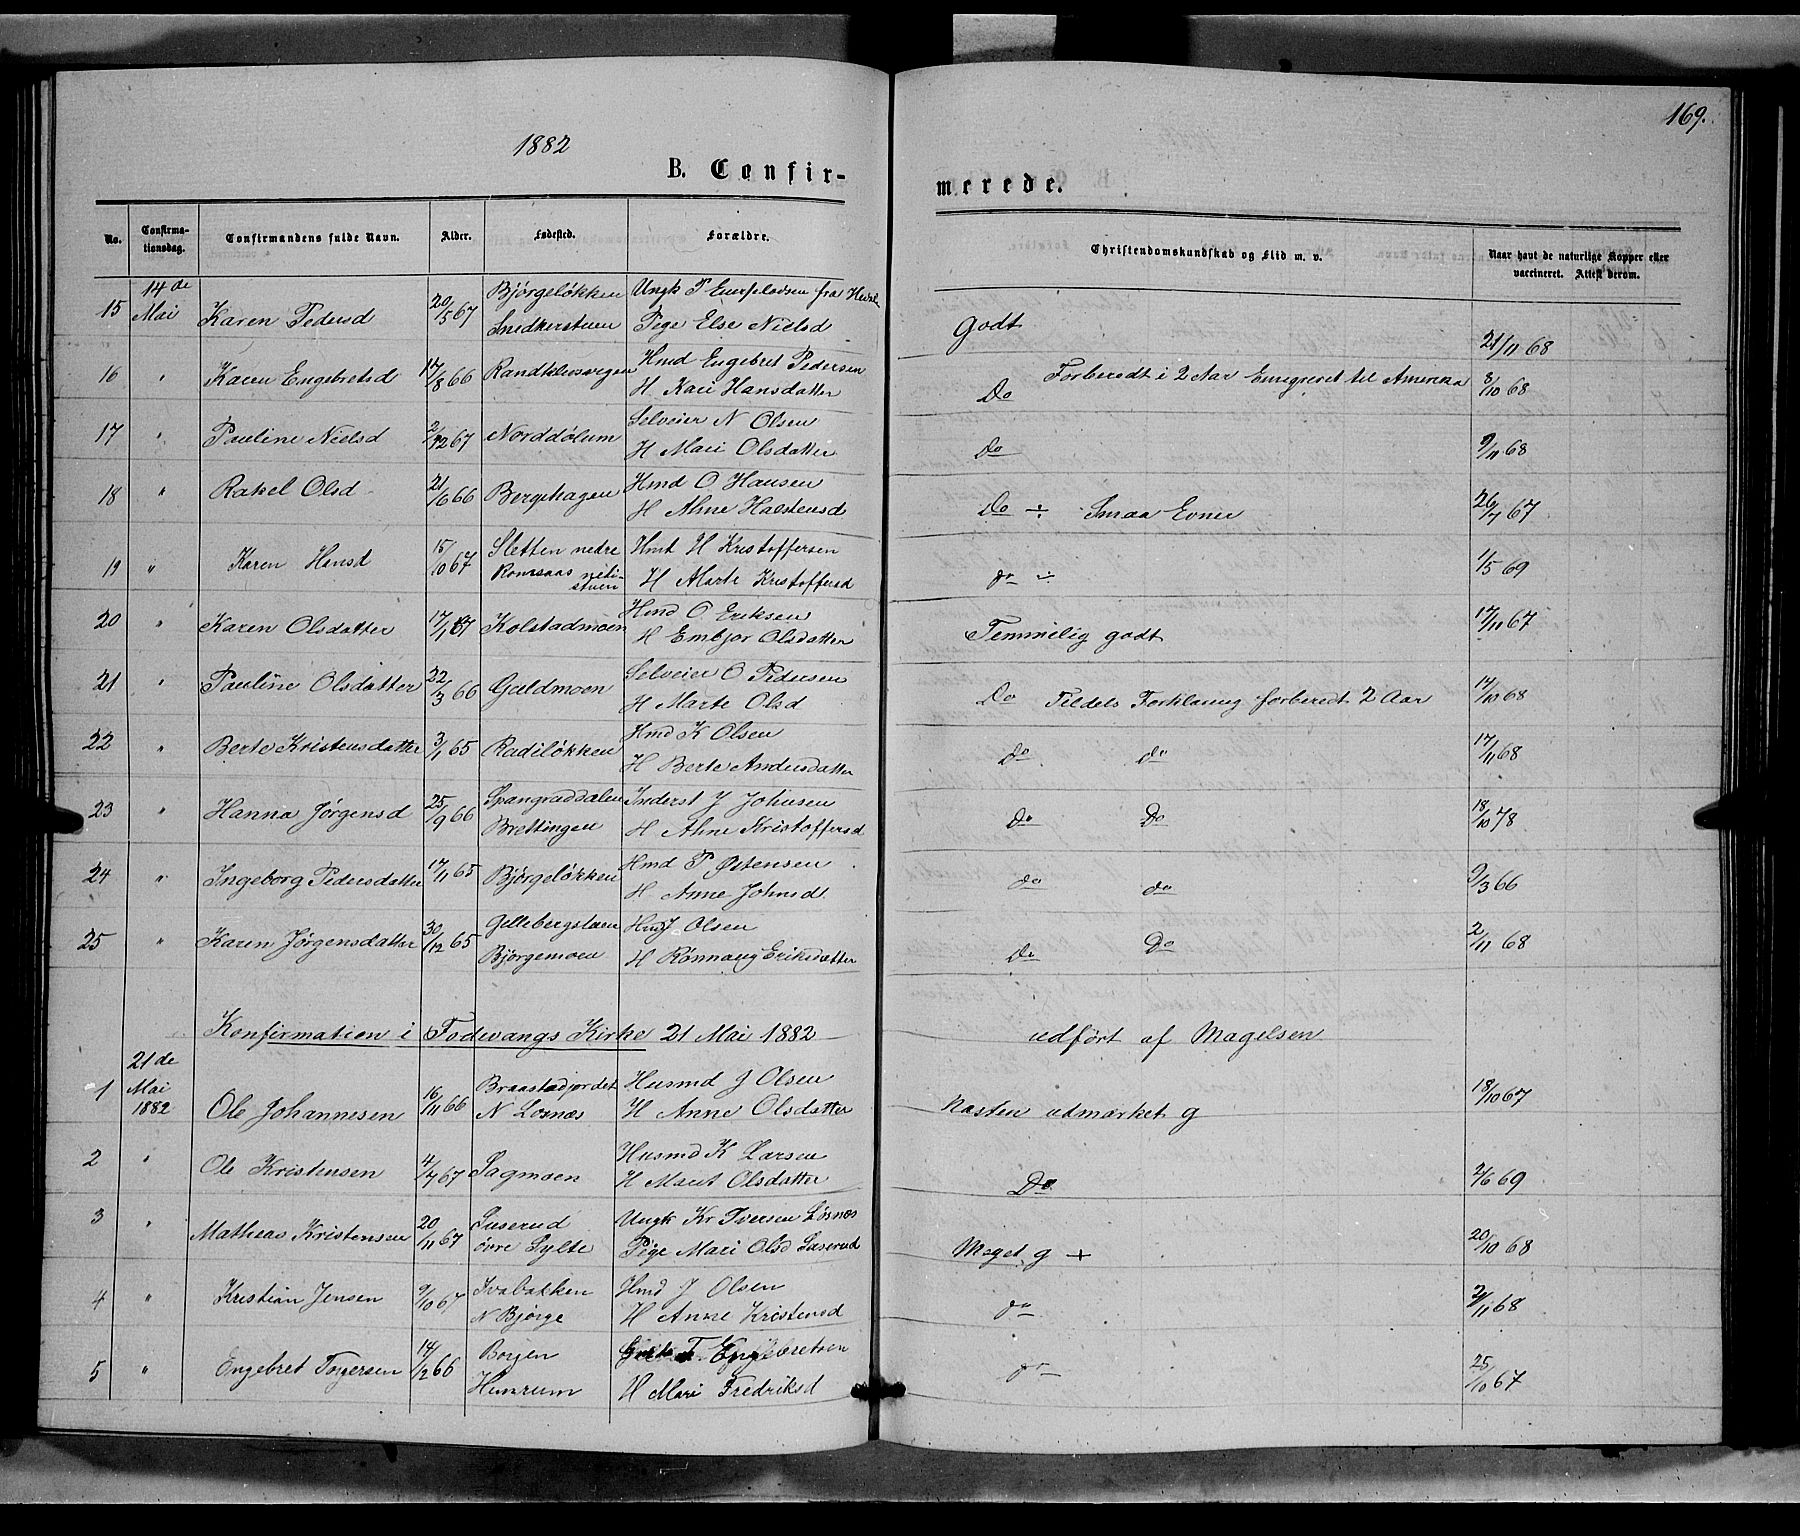 169.
1882
B. Confir-
merede.
No.
Confirma-
tionsdag.
Confirmandens fulde Navn.
Alder.
Fødested.
Forældre.
Christendomskundskab og Flid m. v.
Naar havt de naturlige Kopper eller
vaccineret. Attest derom.
15 14de Mai Karen Pedersd 20/5 67 Bjørgeløkken Ungk P fra
Snedkerstuen Pige Else Nielsd Godt 21/11 68
16 " Karen Engebretsd 17/8 66 Randklevsvigen Hmd Engebret Pedersen
H Kari Hansdatter Do Forberedt i 2 Aar Emigreret til Amerika 8/10 68
17 " Pauline Nielsd 2/12 67 Norddølum Selveier N Olsen
H Mari Olsdatter Do 9/11 68
18 " Rakel Olsd 21/6 66 Bergehagen Hmd O Hansen
H Ahne Halstensd Do ÷ Smaa Evner 26/7 67
19 " Karen Hansd 15/10 67 Sletten nedre Hmt H Kristoffersen
Romsaas nedi-
stuen H Marte Kristoffersd do ÷ 1/5 69
20 " Karen Olsdatter 17/1 67 Kolstadmoen Hmd O Eriksen
H Embjør Olsdatter Temmelig godt 17/11 67
21 " Pauline Olsdatter 22/3 66 Galdmoen Selveier O Pedersen
H Marte Olsd Do Tildels Forklaring forberedt 2 Aar 14/10 68
22 " Berte Kristensdatter 3/1 65 Radiløkken Hmd K Olsen
H Berte Andersdatter do do 17/11 68
23 " Hanna Jørgensd 25/9 66 Inderst J Johnsen
Brettingen H Ahne Kristoffersd Do Do 18/10 78
24 " Ingeborg Pedersdatter 17/11 65 Bjørgeløkken Hmd P Østensen
H Anne Johnsdt do do 9/3 66
25 " Karen Jørgensdatter 30/12 65 Gillebergstuen Hmd J Olsen
Bjørgemoen H Rønnaug Eriksdatter Do Do 2/11 68
Konfirmation i Fodvangs Kirke 21 Mai 1882 udført af Magelsen
1 21de Mai 1882 Ole Johannesen 16/11 66 Braastadjordet Husmd J Olsen
N Losnæs H Anne Olsdatter Næsten udmærket g 18/10 67
2 " Ole Kristensen 4/7 67 Sagmoen Husmd K Larsen
H Marit Olsdatter Do 2/6 69
3 " Matheas Kristensen 20/11 67 Suserud Ungk Kr Iversen Løsnæs
øvre Sylte Pige Mari Olsd Suserud Meget g + 20/10 68
4 " Kristian Jensen 9/10 67 Ivabakken Hmd J Olsen
N Bjørge H Anne Kristensd do 2/11 68
5 " Engebret Torgersen 14/12 66 Borgen T Engebretsen
Hunrum H Mari Fredriksd do 25/10 67